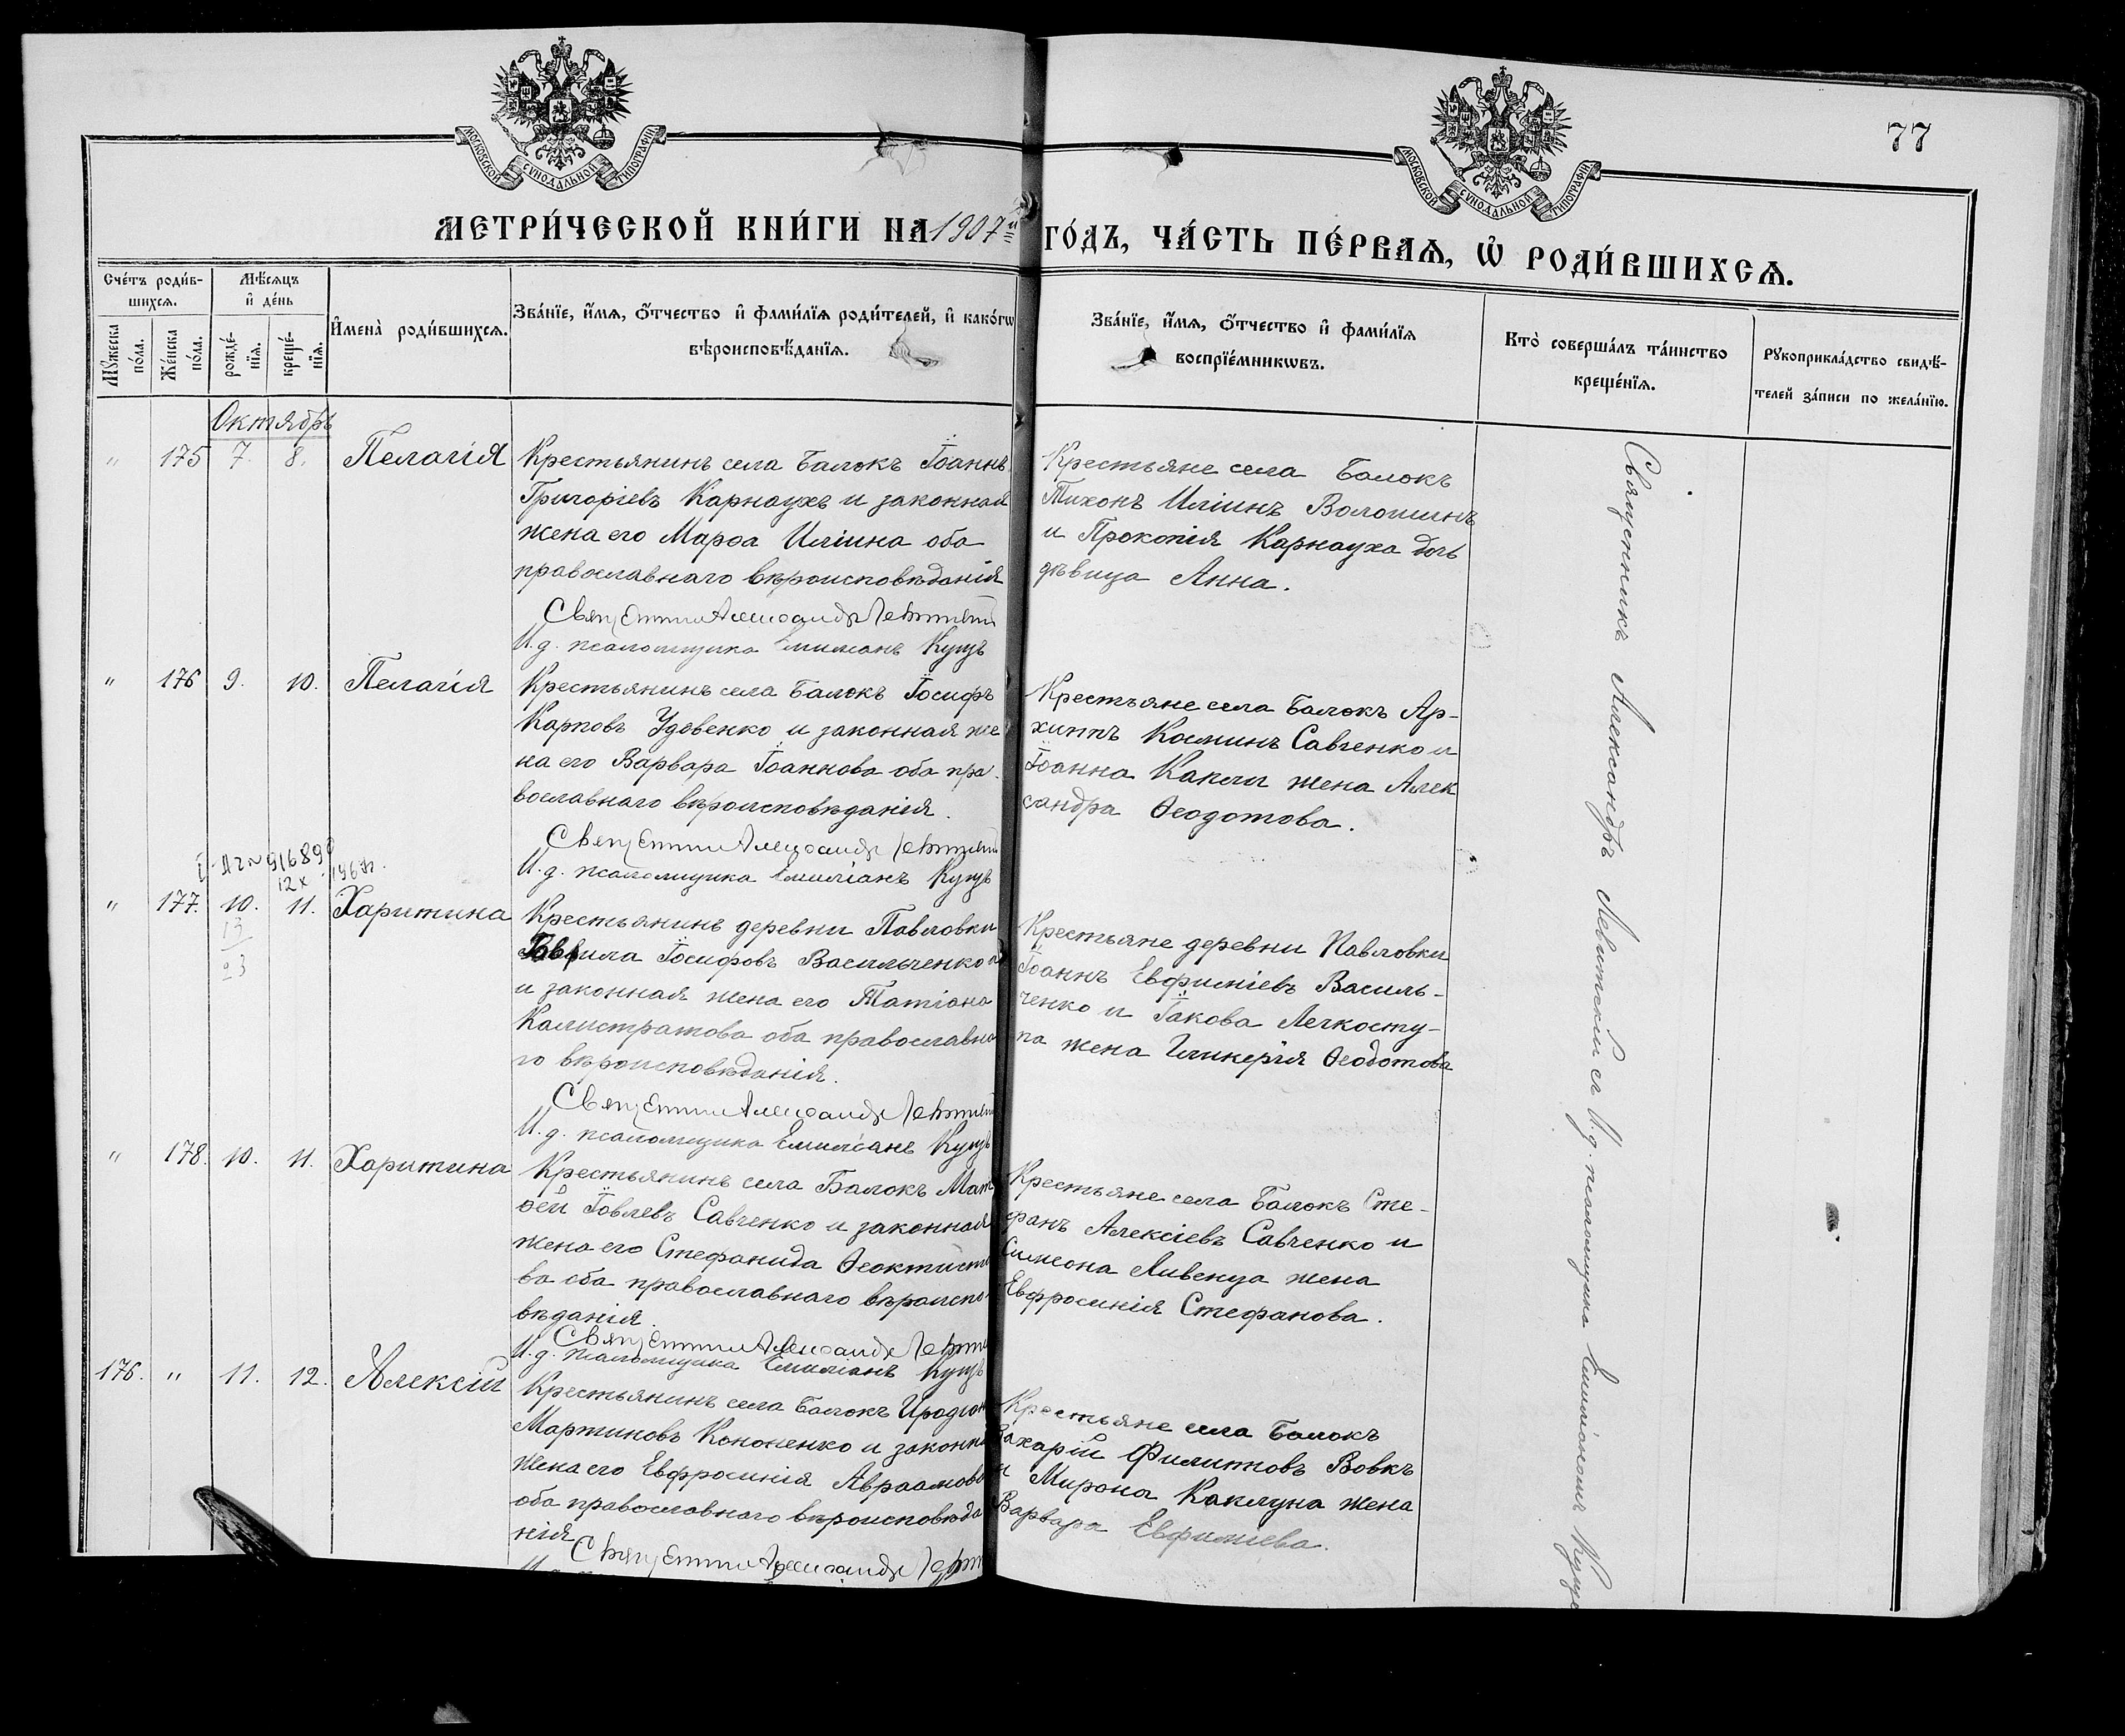 77
МОСКОВСКОЙ СѴНОДАЛЬНОЙ ТИПОГРАФІИ
МОСКОВСКОЙ СѴНОДАЛЬНОЙ ТИПОГРАФІИ
МЕТРИ́ЧЕСКОЙ КНИ́ГИ НА 1907й ГО́ДЪ, ЧА́СТЬ ПЕ́РВАѦ, Ѡ҆ РОДИ́ВШИХСѦ.
Сче́тъ роди́в-
шихсѧ.
Мꙋ́жеска по́ла.
Же́нска по́ла.
Мѣ́сѧцъ
и҆ де́нь
рожде́-
нїѧ.
креще́-
нїѧ.
И҆мена̀ роди́вшихсѧ.
Зва́нїе, и҆́мѧ, ѻ҆́тчество и҆ фами́лїѧ роди́телей, и҆ како́гѡ
вѣроисповѣ́данїѧ.
Зва́нїе, и҆́мѧ, ѻ҆́тчество и҆ фами́лїѧ
воспрїе́мникѡвъ.
Кто̀ соверша́лъ та́инство
креще́нїѧ.
Рꙋкоприкла́дство свидѣ́-
телей за́писи по жела́нїю.
Октябрь
" 175 7. 8. Пелагія
Крестьянинъ села Балокъ Іоаннъ
Григоріевъ Карнаухъ и законная
жена его Марѳа Иліина оба
православнаго вѣроисповѣданія
Священникъ Александръ Левитскій
И.д. псаломщика Емиліанъ Кущъ
Крестьяне села Балокъ
Тихонъ Иліинъ Волошинъ
и Прокопія Карнауха дочь
дѣвица Анна.
" 176 9. 10. Пелагія
Крестьянинъ села Балокъ Іосифъ
Карповъ Удовенко и законная же
на его Варвара Іоаннова оба пра-
вославнаго вѣроисповѣданія.
Священникъ Александръ Левитскій
И.д. псаломщика Емиліанъ Кущъ
Крестьяне села Балокъ Ар-
хиппъ Косминъ Савченко и
Іоанна Капли жена Алек
сандра Ѳеодотова.
12 X 196
" 177. 10. 11. Харитина
13
Крестьянинъ деревни Павловки
Гавріила Іосифовъ Васильченко
и законная жена его Татіана
Калистратова оба православна
го вѣроисповѣданія.
Священникъ Александръ Левитскій
И.д. псаломщика Емиліанъ Кущъ
Крестьяне деревни Павловки
Іоаннъ Евфиміевъ Василь-
ченко и Іакова Легкосту-
па жена Гликерія Ѳеодотова
" 178. 10. 11. Харитина
Крестьянинъ села Балокъ Мат
ѳей Іовлевъ Савченко и законная
жена его Стефанида Ѳеоктисто
ва оба православнаго вѣроиспо-
вѣданія.
Священникъ Александръ Левитскій
И.д. псаломщика Емиліанъ Кущъ
Крестьяне села Балокъ Сте-
фанъ Алексіевъ Савченко и
Симеона Ливенца жена
Евфросинія Стефанова.
176. " 11. 12. Алексій
Крестьянинъ села Балокъ Иродіон
Мартиновъ Кононенко и законна
жена его Евфросинія Авраамова
оба православнаго вѣроисповѣда
нія
Священникъ Александръ Левит
Крестьяне села Балокъ
Захарій Филиповъ Вовкъ
и Мирона Каклуна жена
Варвара Евфиміева.
Священникъ Александръ Левитскій съ И.д. псаломщика Емиліаномъ Куще